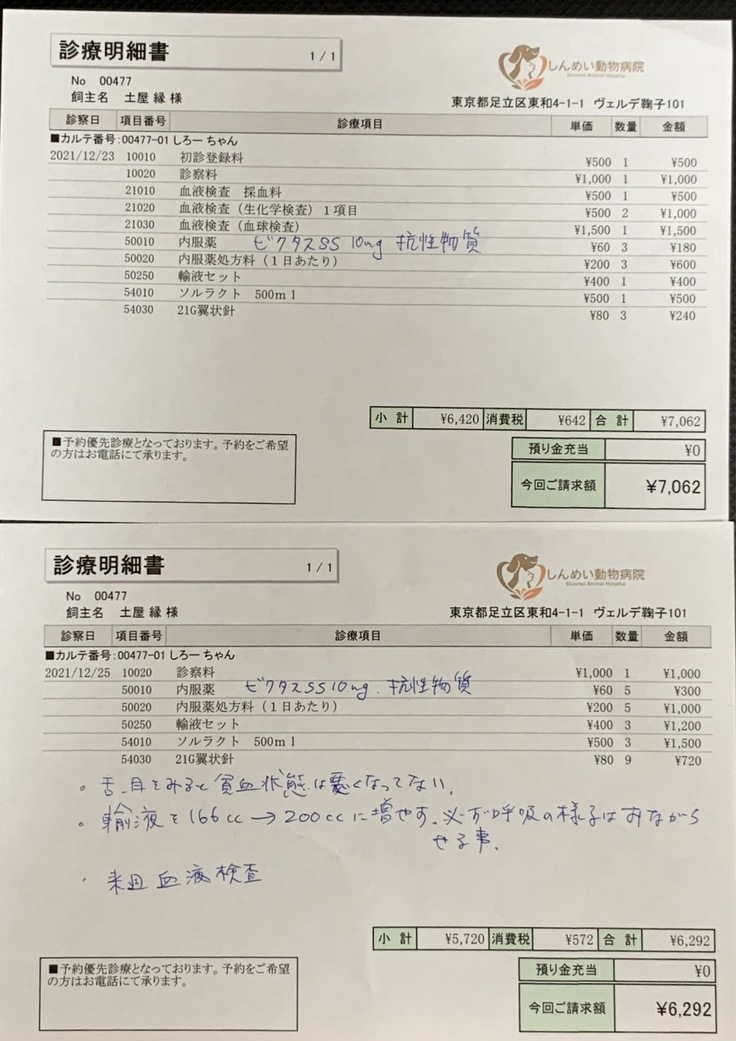 診療明細書
1 / 1
しんめい動物病院
Shinmei Animal Hospital
No 00477
飼主名 土屋 縁 様
東京都足立区東和4-1-1 ヴェルデ鞠子101
診察日 項目番号 診療項目 単価 数量 金額
■カルテ番号:00477-01 しろーちゃん
2021/12/23 10010 初診登録料 ¥500 1 ¥500
10020 診察料 ¥1,000 1 ¥1,000
21010 血液検査 採血料 ¥500 1 ¥500
21020 血液検査(生化学検査)1項目 ¥500 2 ¥1,000
21030 血液検査(血球検査) ¥1,500 1 ¥1,500
50010 内服薬 ビクタスSS 10mg 抗性物質 ¥60 3 ¥180
50020 内服薬処方料(1日あたり) ¥200 3 ¥600
50250 輸液セット ¥400 1 ¥400
54010 ソルラクト 500ml ¥500 1 ¥500
54030 21G翼状針 ¥80 3 ¥240
小計 ¥6,420 消費税 ¥642 合計 ¥7,062
■予約優先診療となっております。予約をご希望
の方はお電話にて承ります。
預り金充当 ¥0
今回ご請求額 ¥7,062
診療明細書
1 / 1
しんめい動物病院
Shinmei Animal Hospital
No 00477
飼主名 土屋 縁 様
東京都足立区東和4-1-1 ヴェルデ鞠子101
診察日 項目番号 診療項目 単価 数量 金額
■カルテ番号:00477-01 しろーちゃん
2021/12/25 10020 診察料 ¥1,000 1 ¥1,000
50010 内服薬 ビクタスSS10mg. 抗性物質 ¥60 5 ¥300
50020 内服薬処方料(1日あたり) ¥200 5 ¥1,000
50250 輸液セット ¥400 3 ¥1,200
54010 ソルラクト 500ml ¥500 3 ¥1,500
54030 21G翼状針 ¥80 9 ¥720
・舌、耳をみると貧血状態は悪くなってない。
・輸液を166cc→200ccに増やす。必ず呼吸の様子はみながら
せる事。
・来週 血液検査
小計 ¥5,720 消費税 ¥572 合計 ¥6,292
■予約優先診療となっております。予約をご希望
の方はお電話にて承ります。
預り金充当 ¥0
今回ご請求額 ¥6,292